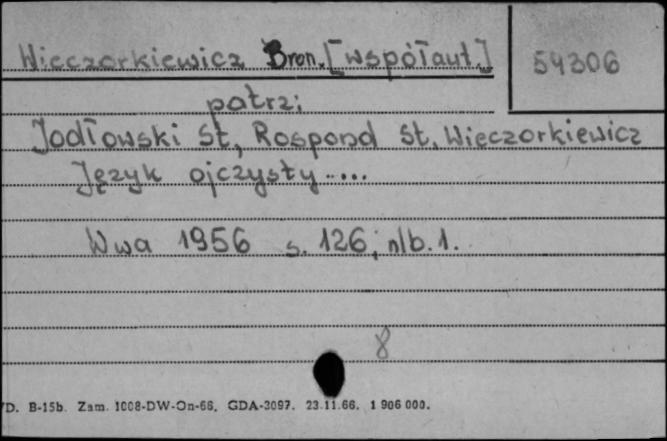 Wieczorkiewicz Bron. [współaut.]
59306
patrz:
Jodłowski St, Rospond St. Wieczorkiewicz
Język ojczysty .....
Wwa 1956 s. 126, nlb. 1.
8
D. B-15b. Zam. 1008-DW-On-66. GDA-3097. 23.11.66. 1 906 000.